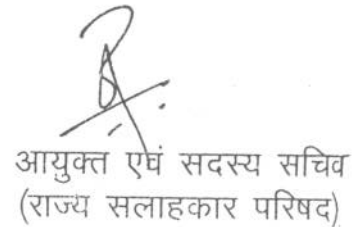 आयुक्त एवं सदस्य सचिव
(राज्य सलाहकार परिषद)